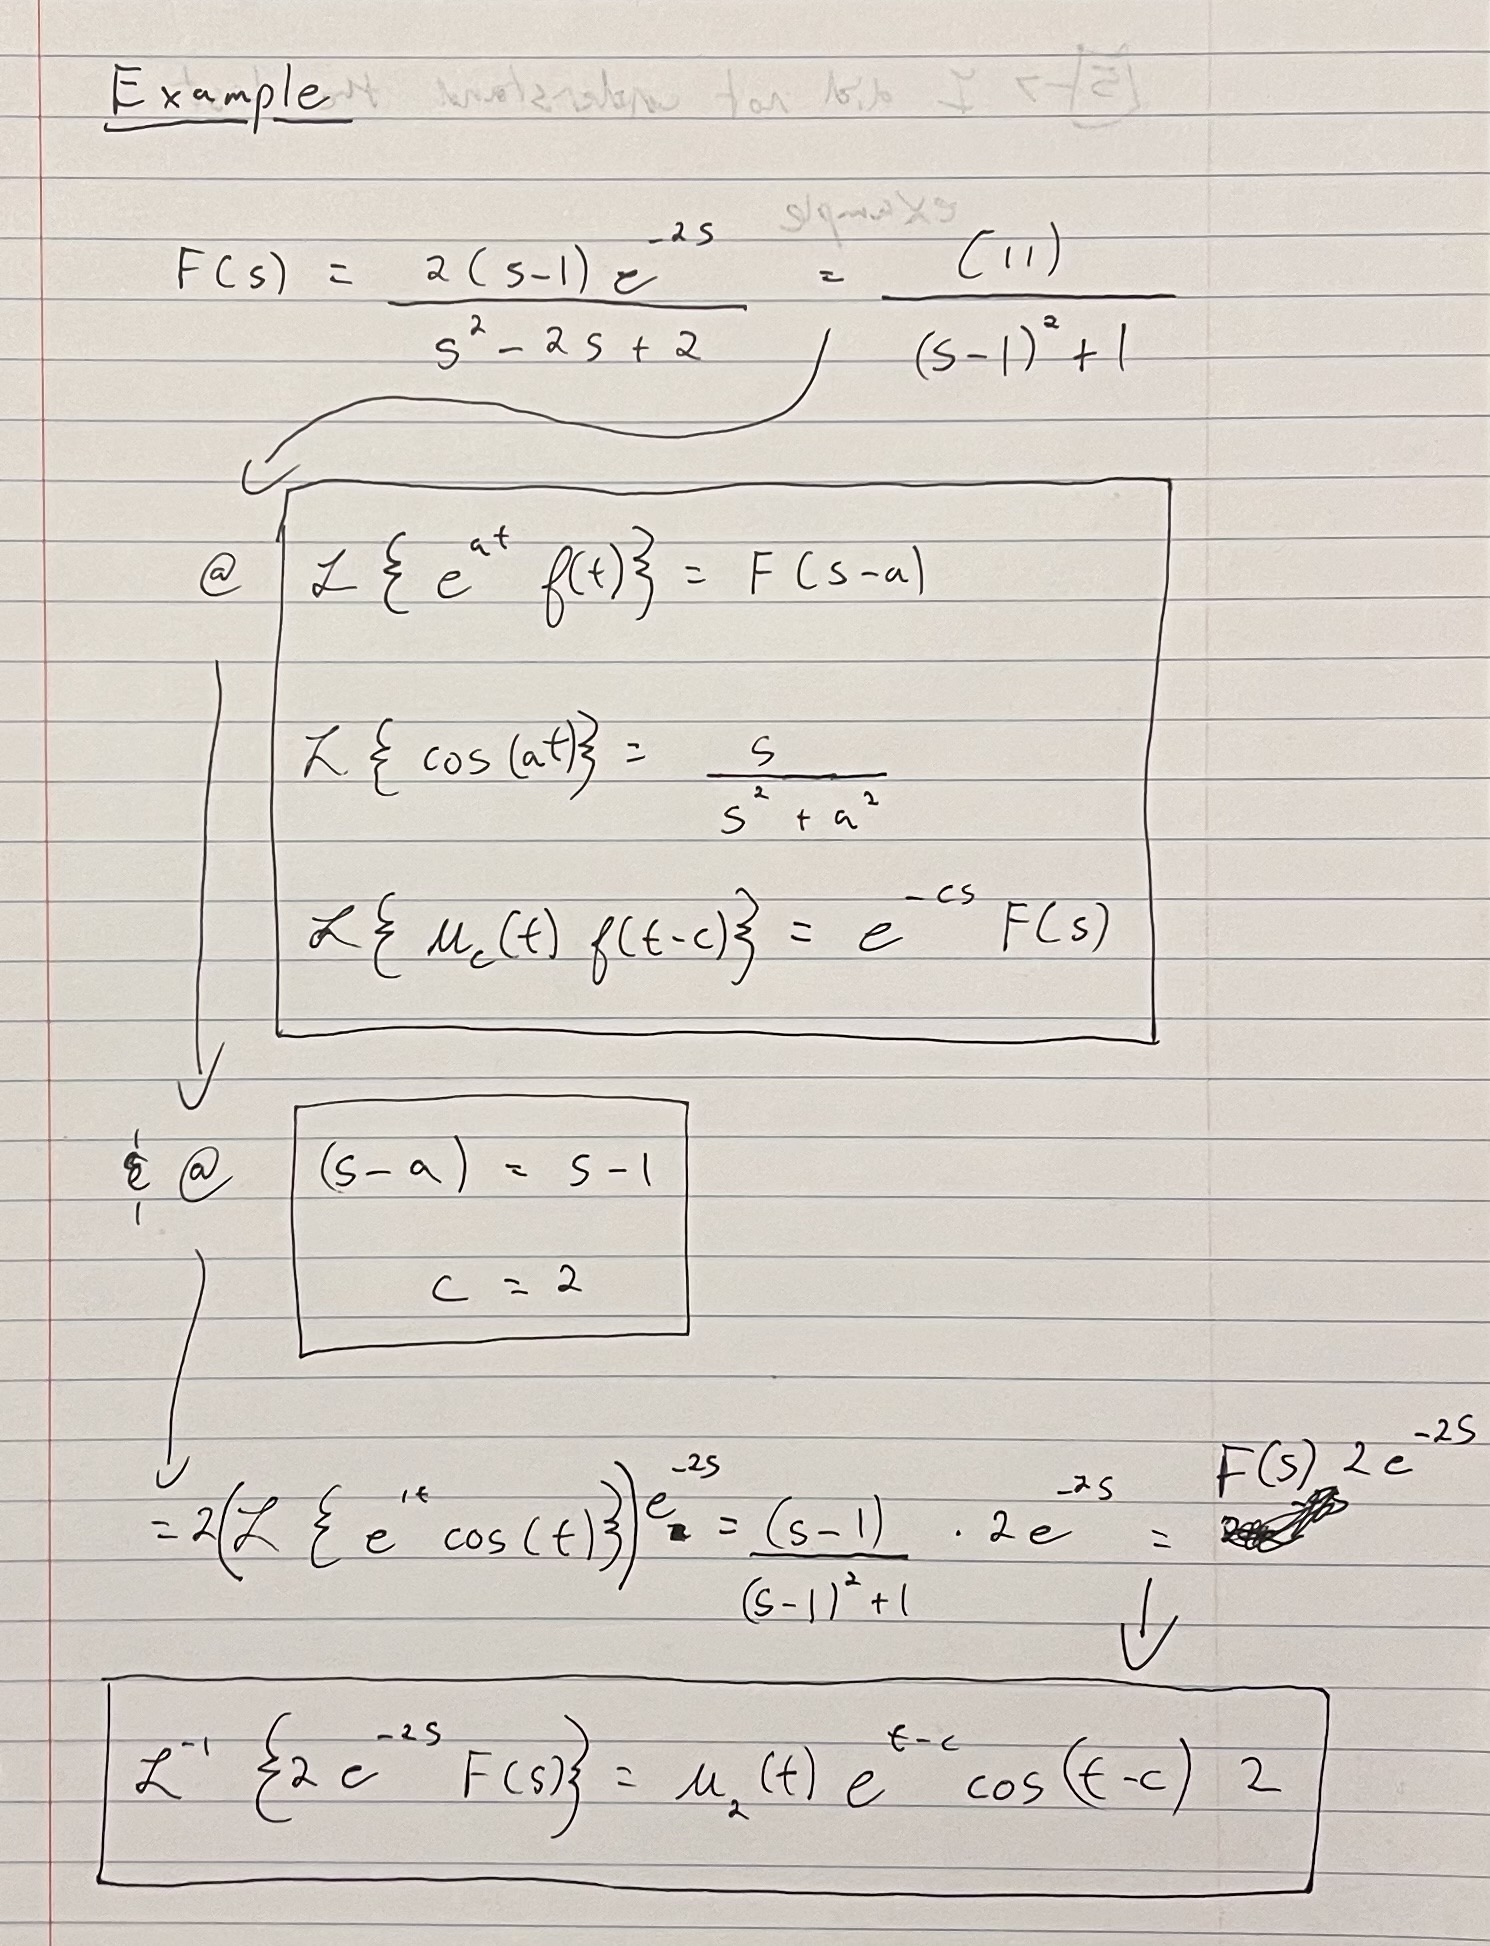 Example
F(s) = 2(s-1) e^{-2s} / (s^2 - 2s + 2) = (11) / ((s-1)^2 + 1)
@ ℒ{e^{at} f(t)} = F(s-a)
ℒ{cos(at)} = s / (s^2 + a^2)
ℒ{μ_c(t) f(t-c)} = e^{-cs} F(s)
& @ (s-a) = s-1
c = 2
= 2(ℒ{e^{1t} cos(t)}) e^{-2s} = (s-1) / ((s-1)^2 + 1) · 2e^{-2s} = F(s) 2e^{-2s}
ℒ^{-1}{2e^{-2s} F(s)} = μ_2(t) e^{t-c} cos(t-c) 2